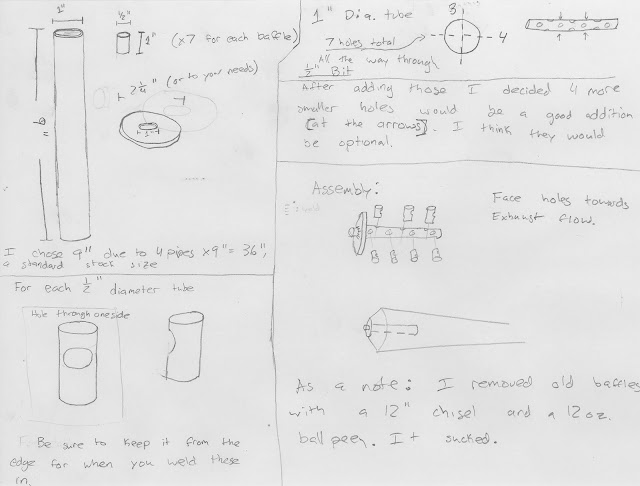 1"
1/2"
1"
(x7 for each baffle)
2 1/4" (or to your needs)
9"
1"
I chose 9" due to 4 pipes x9"= 36",
a standard stock size
For each 1/2" diameter tube
Hole through one side
Be sure to keep it from the
edge for when you weld these
in.
1" Dia. tube
7 holes total
3
4
All the way through
1/2" Bit
After adding those I decided 4 more
smaller holes would be a good addition
[at the arrows]. I think they would
be optional.
Assembly:
Face holes towards
Exhaust flow.
As a note: I removed old baffles
with a 12" chisel and a 12 oz.
ball peen. It sucked.